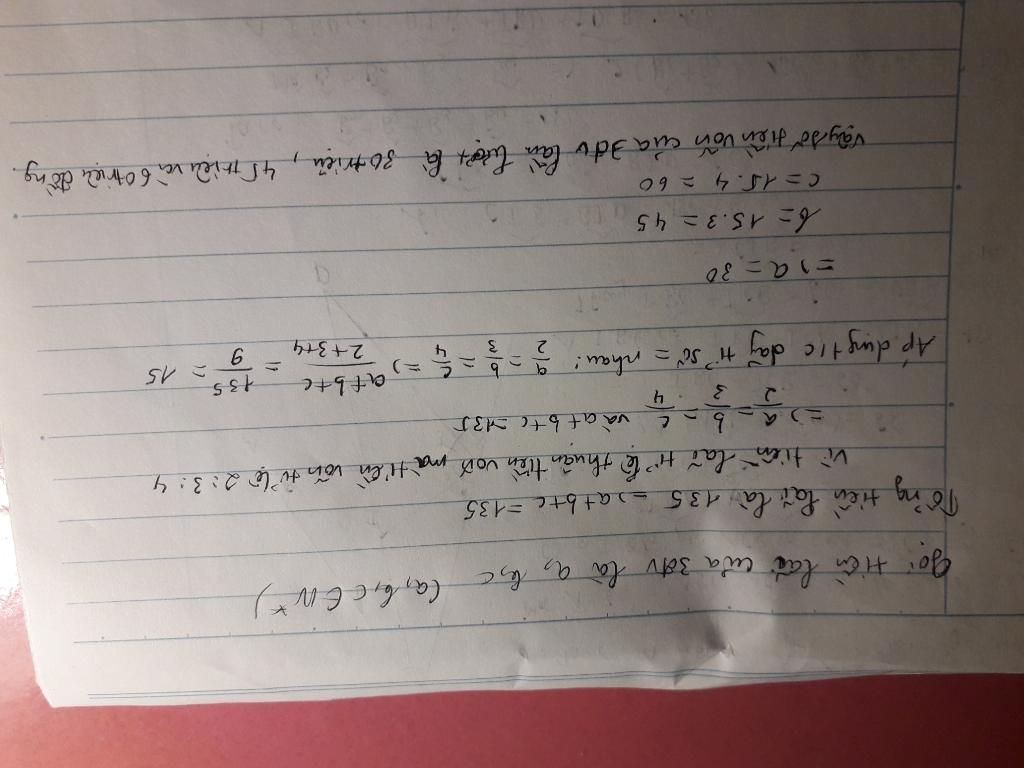 Gọi tiền lãi của 3 đv là a, b, c (a, b, c ∈ N*)
Tổng tiền lãi là 135 => a+b+c = 135
Vì tiền lãi tỉ lệ thuận tiền vốn mà tiền vốn tỉ lệ 2:3:4
=> a/2 = b/3 = c/4 và a+b+c = 135
Áp dụng t/c dãy tỉ số = nhau: a/2 = b/3 = c/4 => a+b+c/2+3+4 = 135/9 = 15
=> a = 30
b = 15.3 = 45
c = 15.4 = 60
vậy số tiền vốn của 3 đv lần lượt là 30 triệu, 45 triệu và 60 triệu đồng.